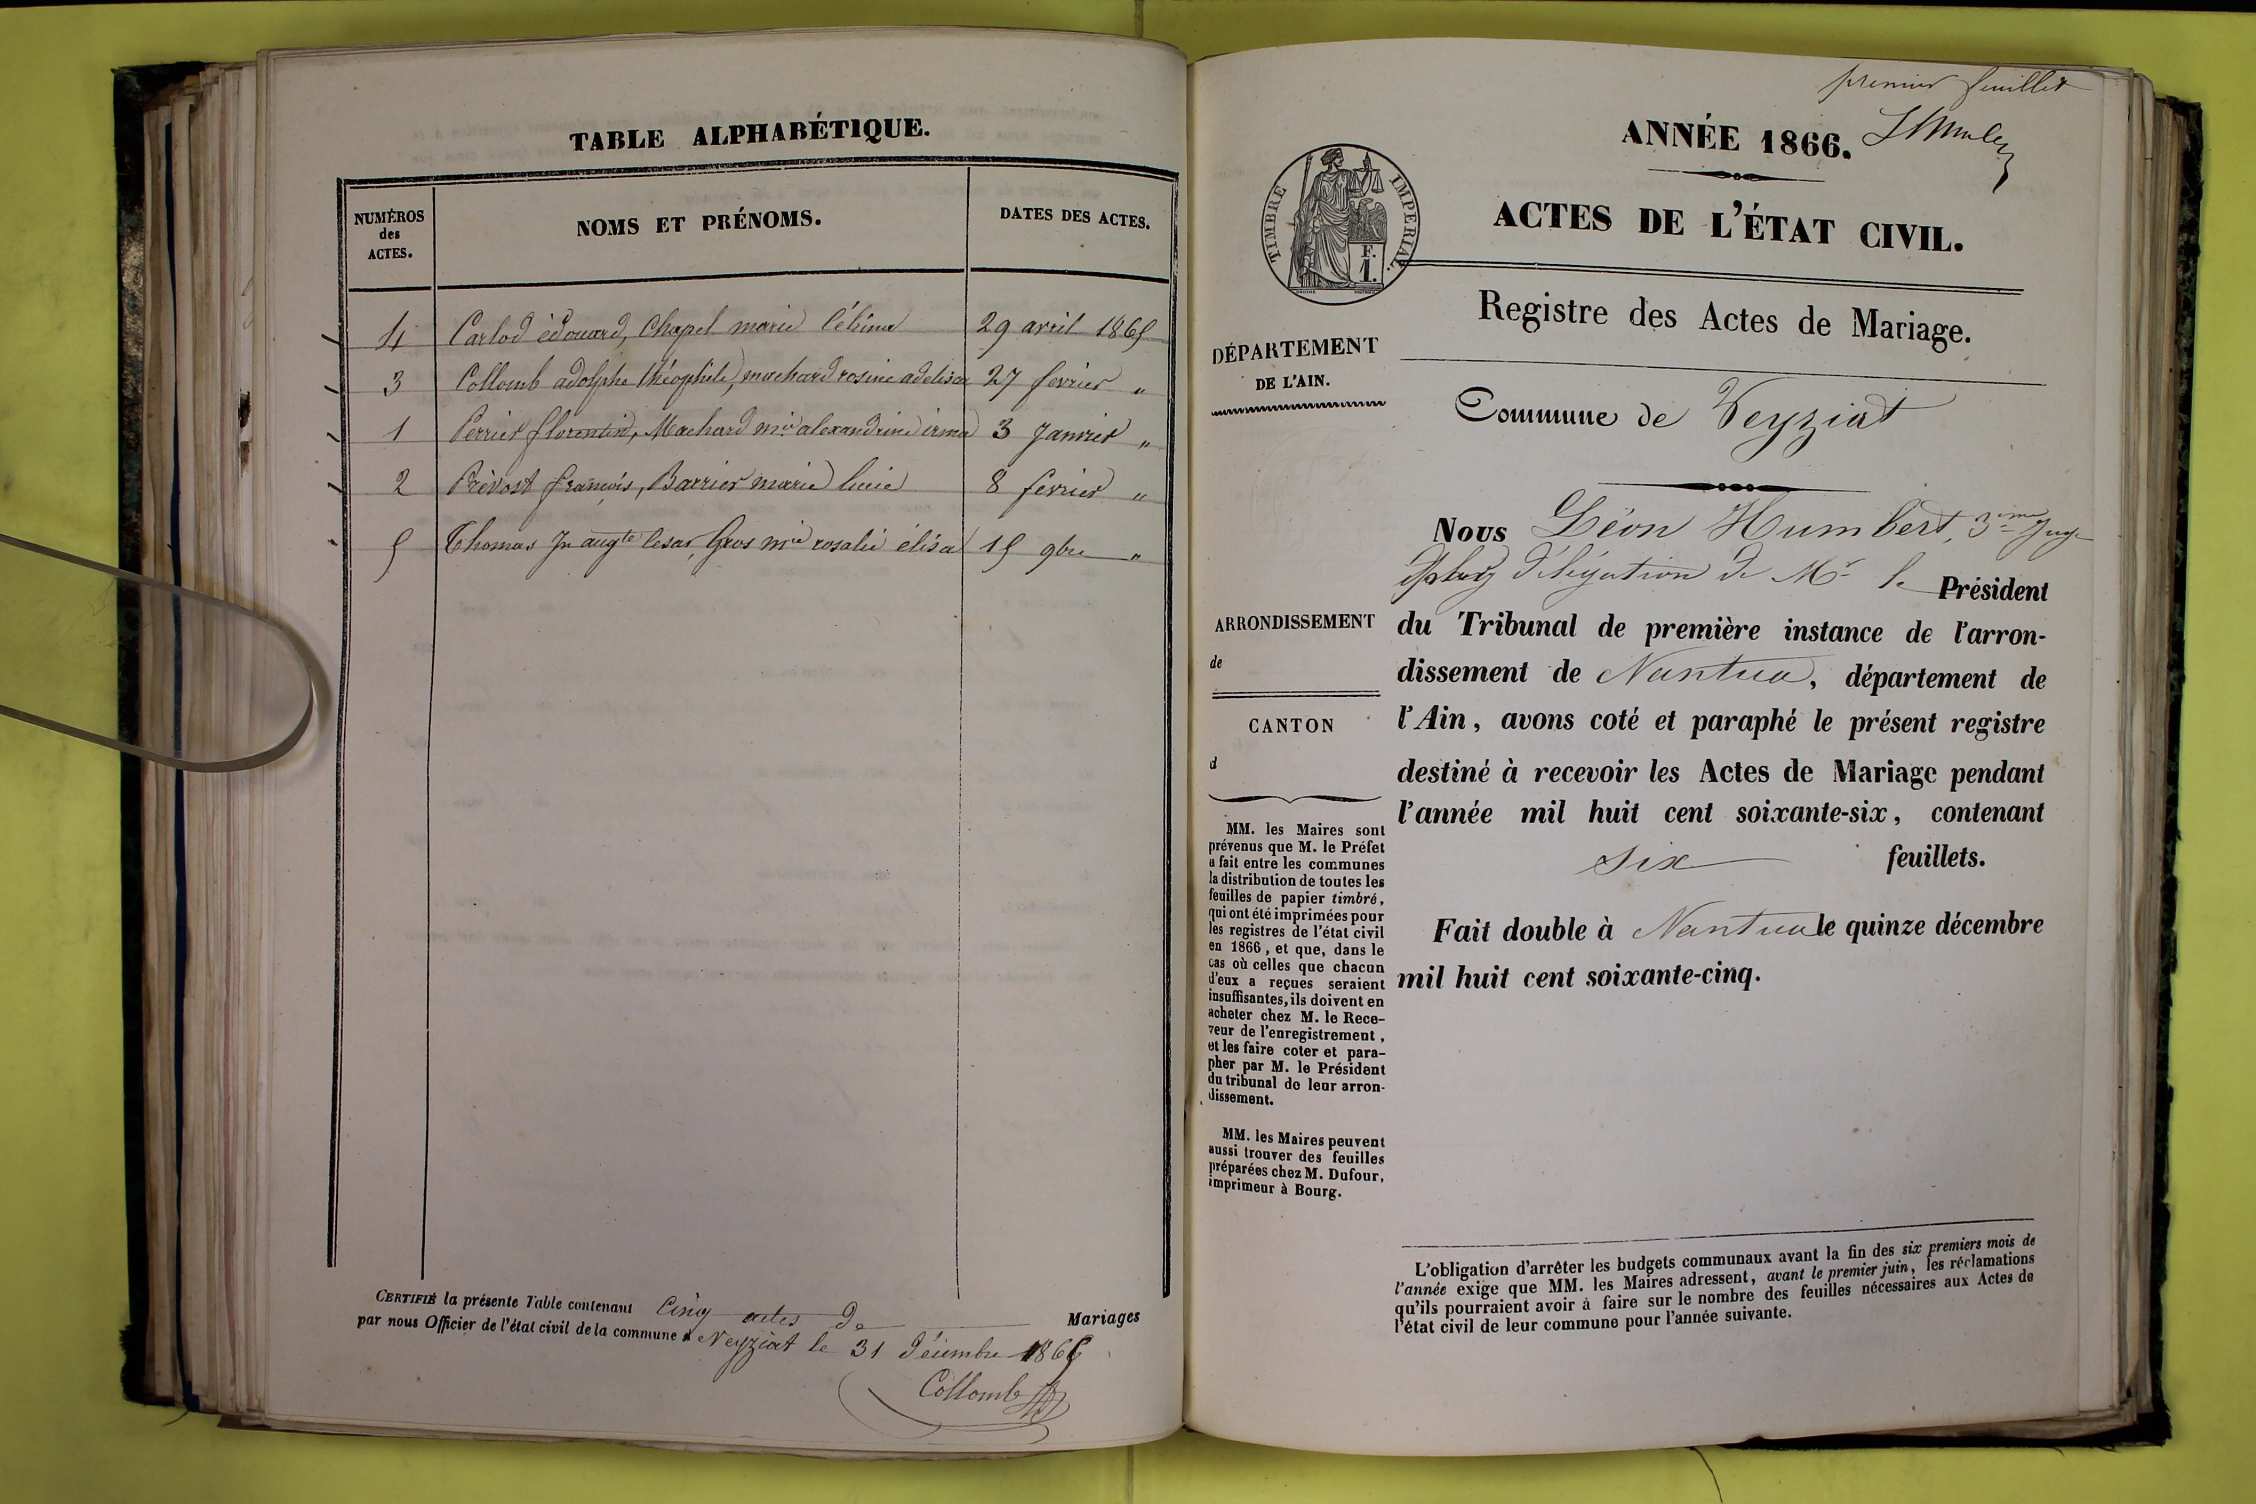 TABLE ALPHABÉTIQUE.
NUMÉROS
des
ACTES.
NOMS ET PRÉNOMS.
DATES DES ACTES.
4 Carlod édouard, Chapel marie 29 avril 1865
3 Collomb adolphe théophile, machard rosine adelisa 27 fevrier "
1 Perrier florentin, Machard mie alexandrine irma 3 Janvier "
2 Prévost françois, Barrier marie lucie 8 février "
5 Thomas Jn augte Cesar, Gros mie rosalie élisa 15 9bre "
CERTIFIÉ la présente Table contenant Cinq actes de Mariages
par nous Officier de l'état civil de la commune de Veyziat le 31 décembre 1865
Collomb
premier feuillet
ANNÉE 1866.
ACTES DE L'ÉTAT CIVIL.
TIMBRE IMPÉRIAL.
F.
1.
Registre des Actes de Mariage.
DÉPARTEMENT
DE L'AIN.
Commune de Veyziat
Nous Léon Humbert, 3ème Juge
délégation de Mr le Président
ARRONDISSEMENT
de
du Tribunal de première instance de l'arron-
dissement de Nantua, département de
CANTON
d
l'Ain, avons coté et paraphé le présent registre
destiné à recevoir les Actes de Mariage pendant
l'année mil huit cent soixante-six, contenant
six feuillets.
Fait double à Nantua le quinze décembre
mil huit cent soixante-cinq.
MM. les Maires sont
prévenus que M. le Préfet
a fait entre les communes
la distribution de toutes les
feuilles de papier timbré,
qui ont été imprimées pour
les registres de l'état civil
en 1866, et que, dans le
cas où celles que chacun
d'eux a reçues seraient
insuffisantes, ils doivent en
acheter chez M. le Rece-
veur de l'enregistrement,
et les faire coter et para-
pher par M. le Président
du tribunal de leur arron-
dissement.
MM. les Maires peuvent
aussi trouver des feuilles
préparées chez M. Dufour,
imprimeur à Bourg.
L'obligation d'arrêter les budgets communaux avant la fin des six premiers mois de
l'année exige que MM. les Maires adressent, avant le premier juin, les réclamations
qu'ils pourraient avoir à faire sur le nombre des feuilles nécessaires aux Actes de
l'état civil de leur commune pour l'année suivante.